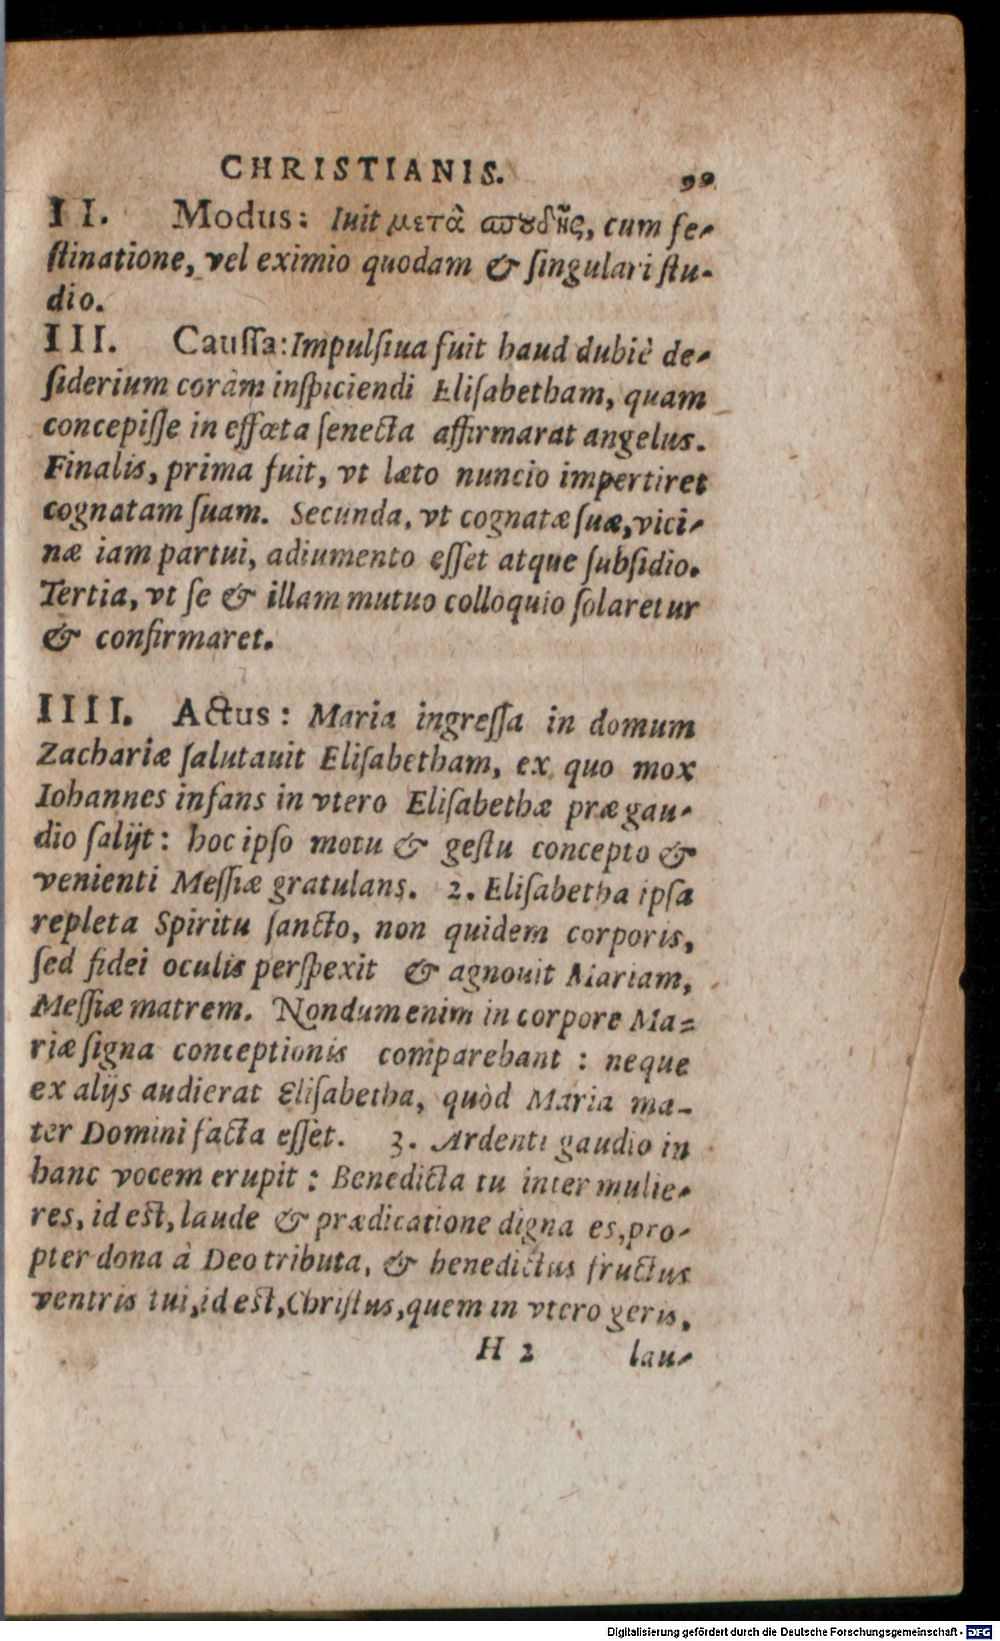 CHRISTIANIS. 99
II. Modus: Iuit μετὰ σπουδῆς, cum fe-
ſtinatione, vel eximio quodam & ſingulari ſtu-
dio.
III. Cauſſa: Impulſiua fuit haud dubiè de-
ſiderium coràm inſpiciendi Eliſabetham, quam
concepiſſe in effœta ſenecta affirmarat angelus.
Finalis, prima fuit, vt læto nuncio impertiret
cognatam ſuam. Secunda, vt cognatæ ſuæ, vici-
næ iam partui, adiumento eſſet atque ſubſidio.
Tertia, vt ſe & illam mutuo colloquio ſolaretur
& confirmaret.
IIII. Actus: Maria ingreſſa in domum
Zachariæ ſalutauit Eliſabetham, ex quo mox
Iohannes infans in vtero Eliſabethæ præ gau-
dio ſalijt: hoc ipſo motu & geſtu concepto &
venienti Meſſiæ gratulans. 2. Eliſabetha ipſa
repleta Spiritu ſancto, non quidem corporis,
ſed fidei oculis perſpexit & agnouit Mariam,
Meſſiæ matrem. Nondum enim in corpore Ma=
riæ ſigna conceptionis comparebant: neque
ex alijs audierat Eliſabetha, quòd Maria ma-
ter Domini facta eſſet. 3. Ardenti gaudio in
hanc vocem erupit: Benedicta tu inter mulie-
res, id eſt, laude & prædicatione digna es, pro-
pter dona à Deo tributa, & benedictus fructus
ventris tui, id eſt, Chriſtus, quem in vtero geris,
H 2 lau-
Digitalisierung gefördert durch die Deutsche Forschungsgemeinschaft - DFG